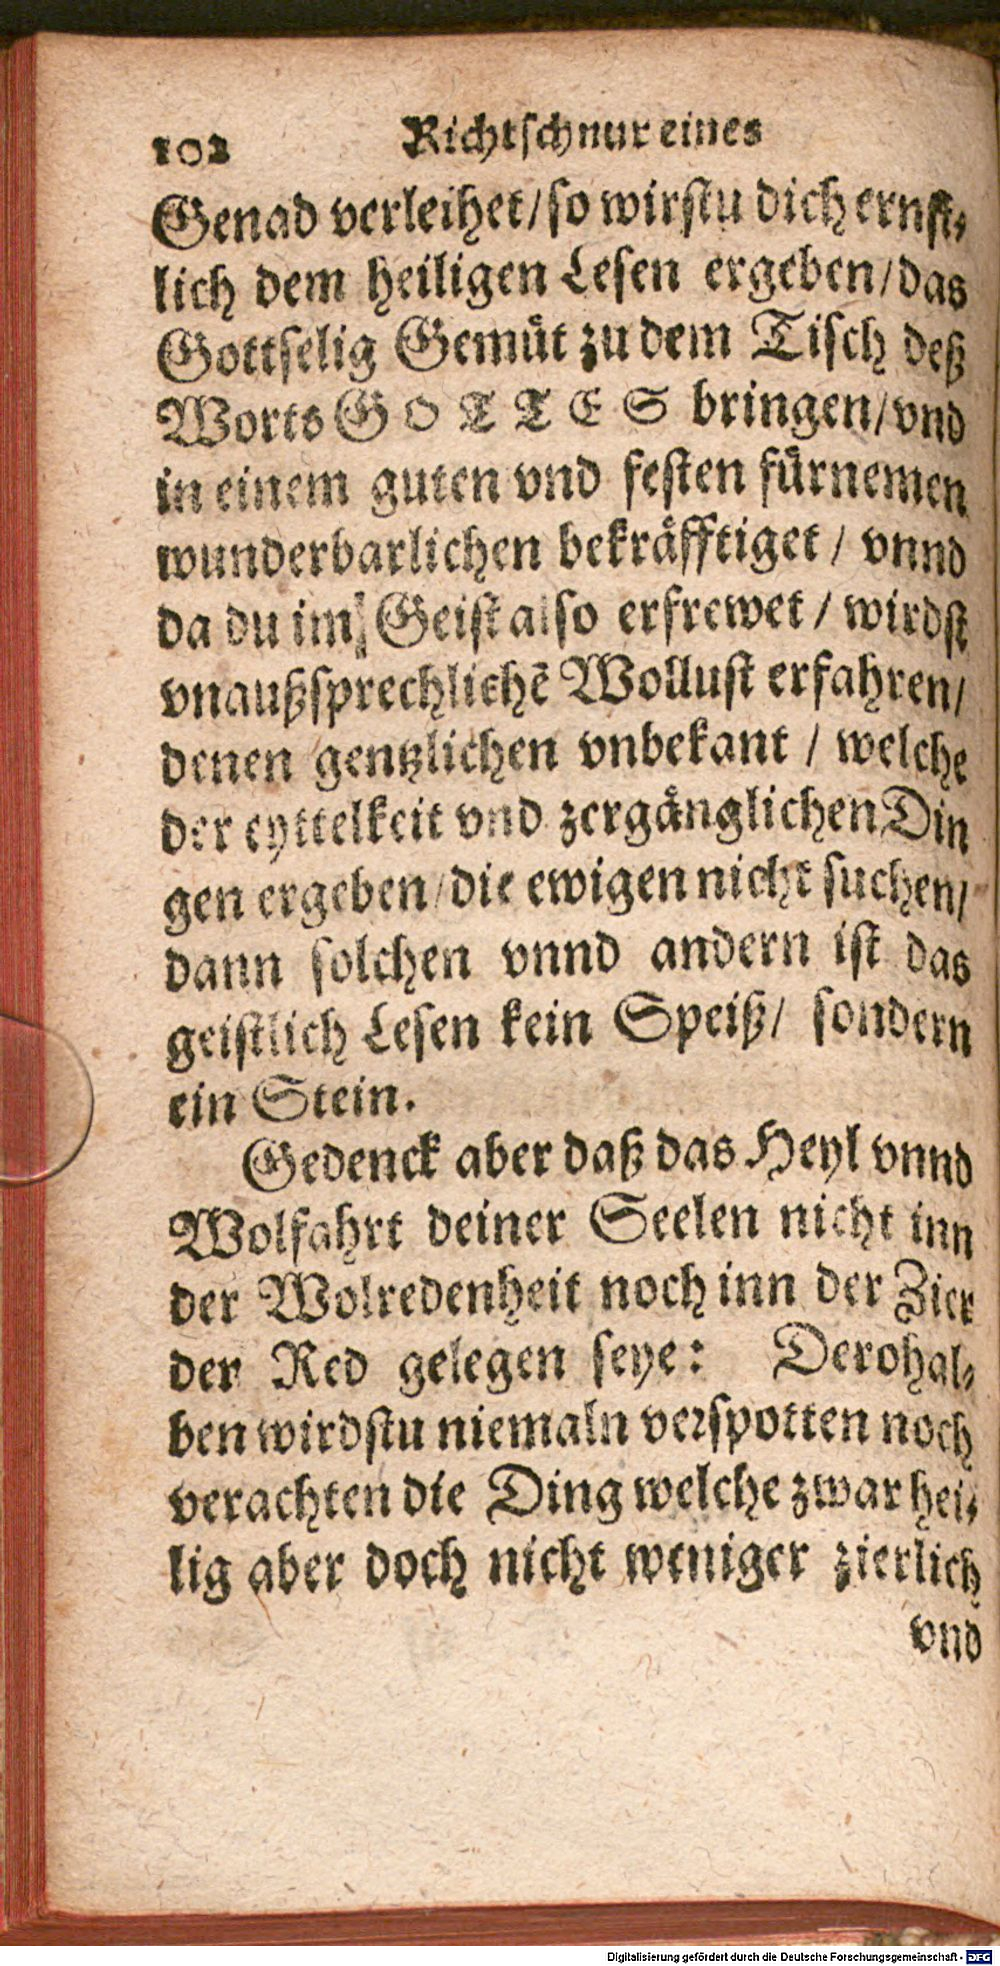 102 Richtschnur eines
Genad verleihet/so wirstu dich ernst-
lich dem heiligen Lesen ergeben/das
Gottselig Gemüt zu dem Tisch deß
Worts GOTTES bringen/vnd
in einem guten vnd festen fürnemen
wunderbarlichen bekräfftiget / vnnd
da du im Geist also erfrewet / wirdst
vnaußsprechlichē Wollust erfahren/
denen gentzlichen vnbekant / welche
der eyttelkeit vnd zergänglichen Din
gen ergeben/die ewigen nicht suchen/
dann solchen vnnd andern ist das
geistlich Lesen kein Speiß/ sondern
ein Stein.
Gedenck aber daß das Heyl vnnd
Wolfahrt deiner Seelen nicht inn
der Wolredenheit noch inn der Zier
der Red gelegen seye: Derohal-
ben wirdstu niemaln verspotten noch
verachten die Ding welche zwar hei-
lig aber doch nicht weniger zierlich
vnd
Digitalisierung gefördert durch die Deutsche Forschungsgemeinschaft - DFG